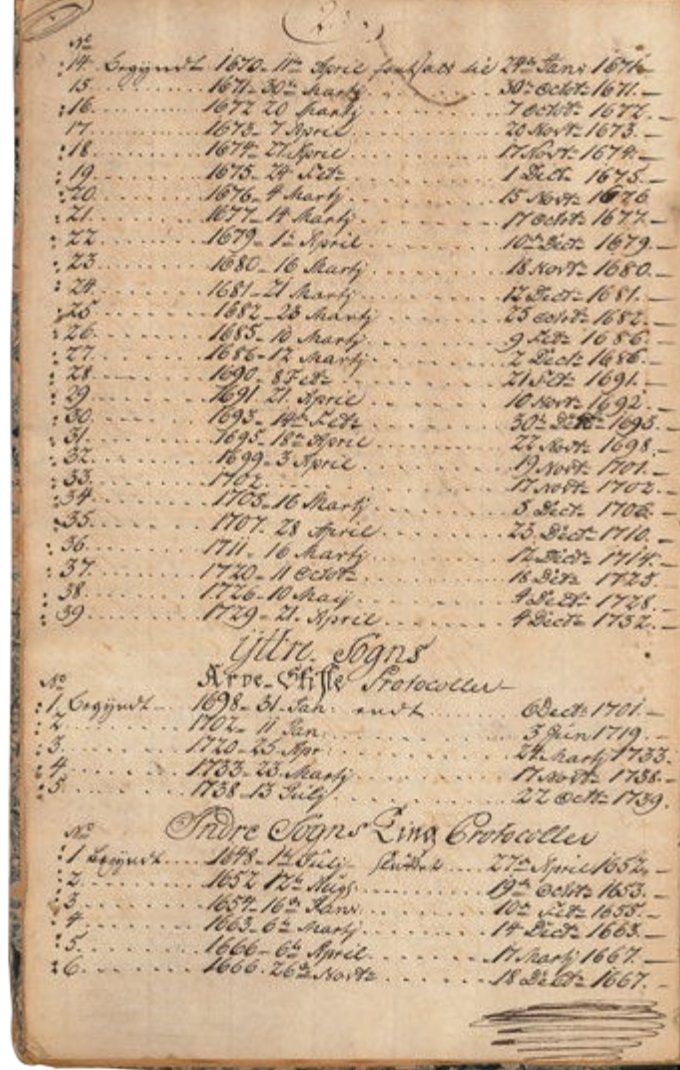 No
:14. Begyndt 1670 - 11te April 24de Janv 1671 —
15. 1671 - 30te Martj 30te Octobr 1671. —
:16. 1672 20 Martj 7 Octobr 1672. —
17. 1673 - 7 April 20 Novbr 1673. —
:18 1674 - 21 April 17 Novbr 1674. —
:19. 1675 - 24 Febr 1 Decbr 1675. —
:20. 1676 - 4 Martj 15 Novbr 1676
:21. 1677 - 14 Martj 17 Octobr 1677. —
:22 1679 - 1te April 10de Decbr 1679. —
:23 1680 - 16 Martj 18 Novbr 1680. —
:24. 1681 - 21 Martj 12 Decbr 1681. —
:25 1682 - 23 Martj 25 Octobr 1682. —
:26. 1685 - 10 Martj 9 Febr 1686. —
:27. 1686 - 12 Martj 2 Decbr 1686. —
:28. 1690 - 8 Febr 21 Febr 1691. —
:29 1691. 21. April 10 Novbr 1692. —
:30. 1693 - 14de Febr 30te 1695. —
:31. 1695 - 18de April 22 Novbr 1698. —
:32. 1699 - 3 April 19 Novbr 1701. —
:33. 1702. 17 Novbr 1702. —
:34 1703 - 16 Martj 3 Decbr 1706. —
:35. 1707. 28 April 23. Decbr 1710. —
36. 1711 - 16 Martj 12 Decbr 1714. —
:37. 1720 - 11 Octobr 18 Decbr 1725. —
:38. 1726 - 10 Maij 4 Decbr 1728. —
:39 1729 - 21. April 4 Decbr 1732. —
Yttre Sogns
Arve-Skifte Protocoller —
No
:1 Begyndt 1698 - 31 Jan: endt 6 Decbr 1701. —
:2 1702 - 11 Jan: 3 Juin 1719. —
:3. 1720 - 25 Apr: 24 Martj 1733.
:4 1733 - 23 Martj 17 Novbr 1738. —
:5. 1738 - 13 Julj 22 Octbr 1739.
Indre Sogns Ting Protocoller
No
:1 Begyndt 1648 - 1te Julj sluttet 27de April 1652. —
:2. 1652 12te Augs: 19de Octobr 1653. —
:3 1654 - 16de Janv: 10de Febr 1655. —
:4 1663 - 6te Martj 14 Decbr 1663. —
:5. 1666 - 6te April 17 Martj 1667. —
:6. 1666. 26de Novbr 18 Decbr 1667. —